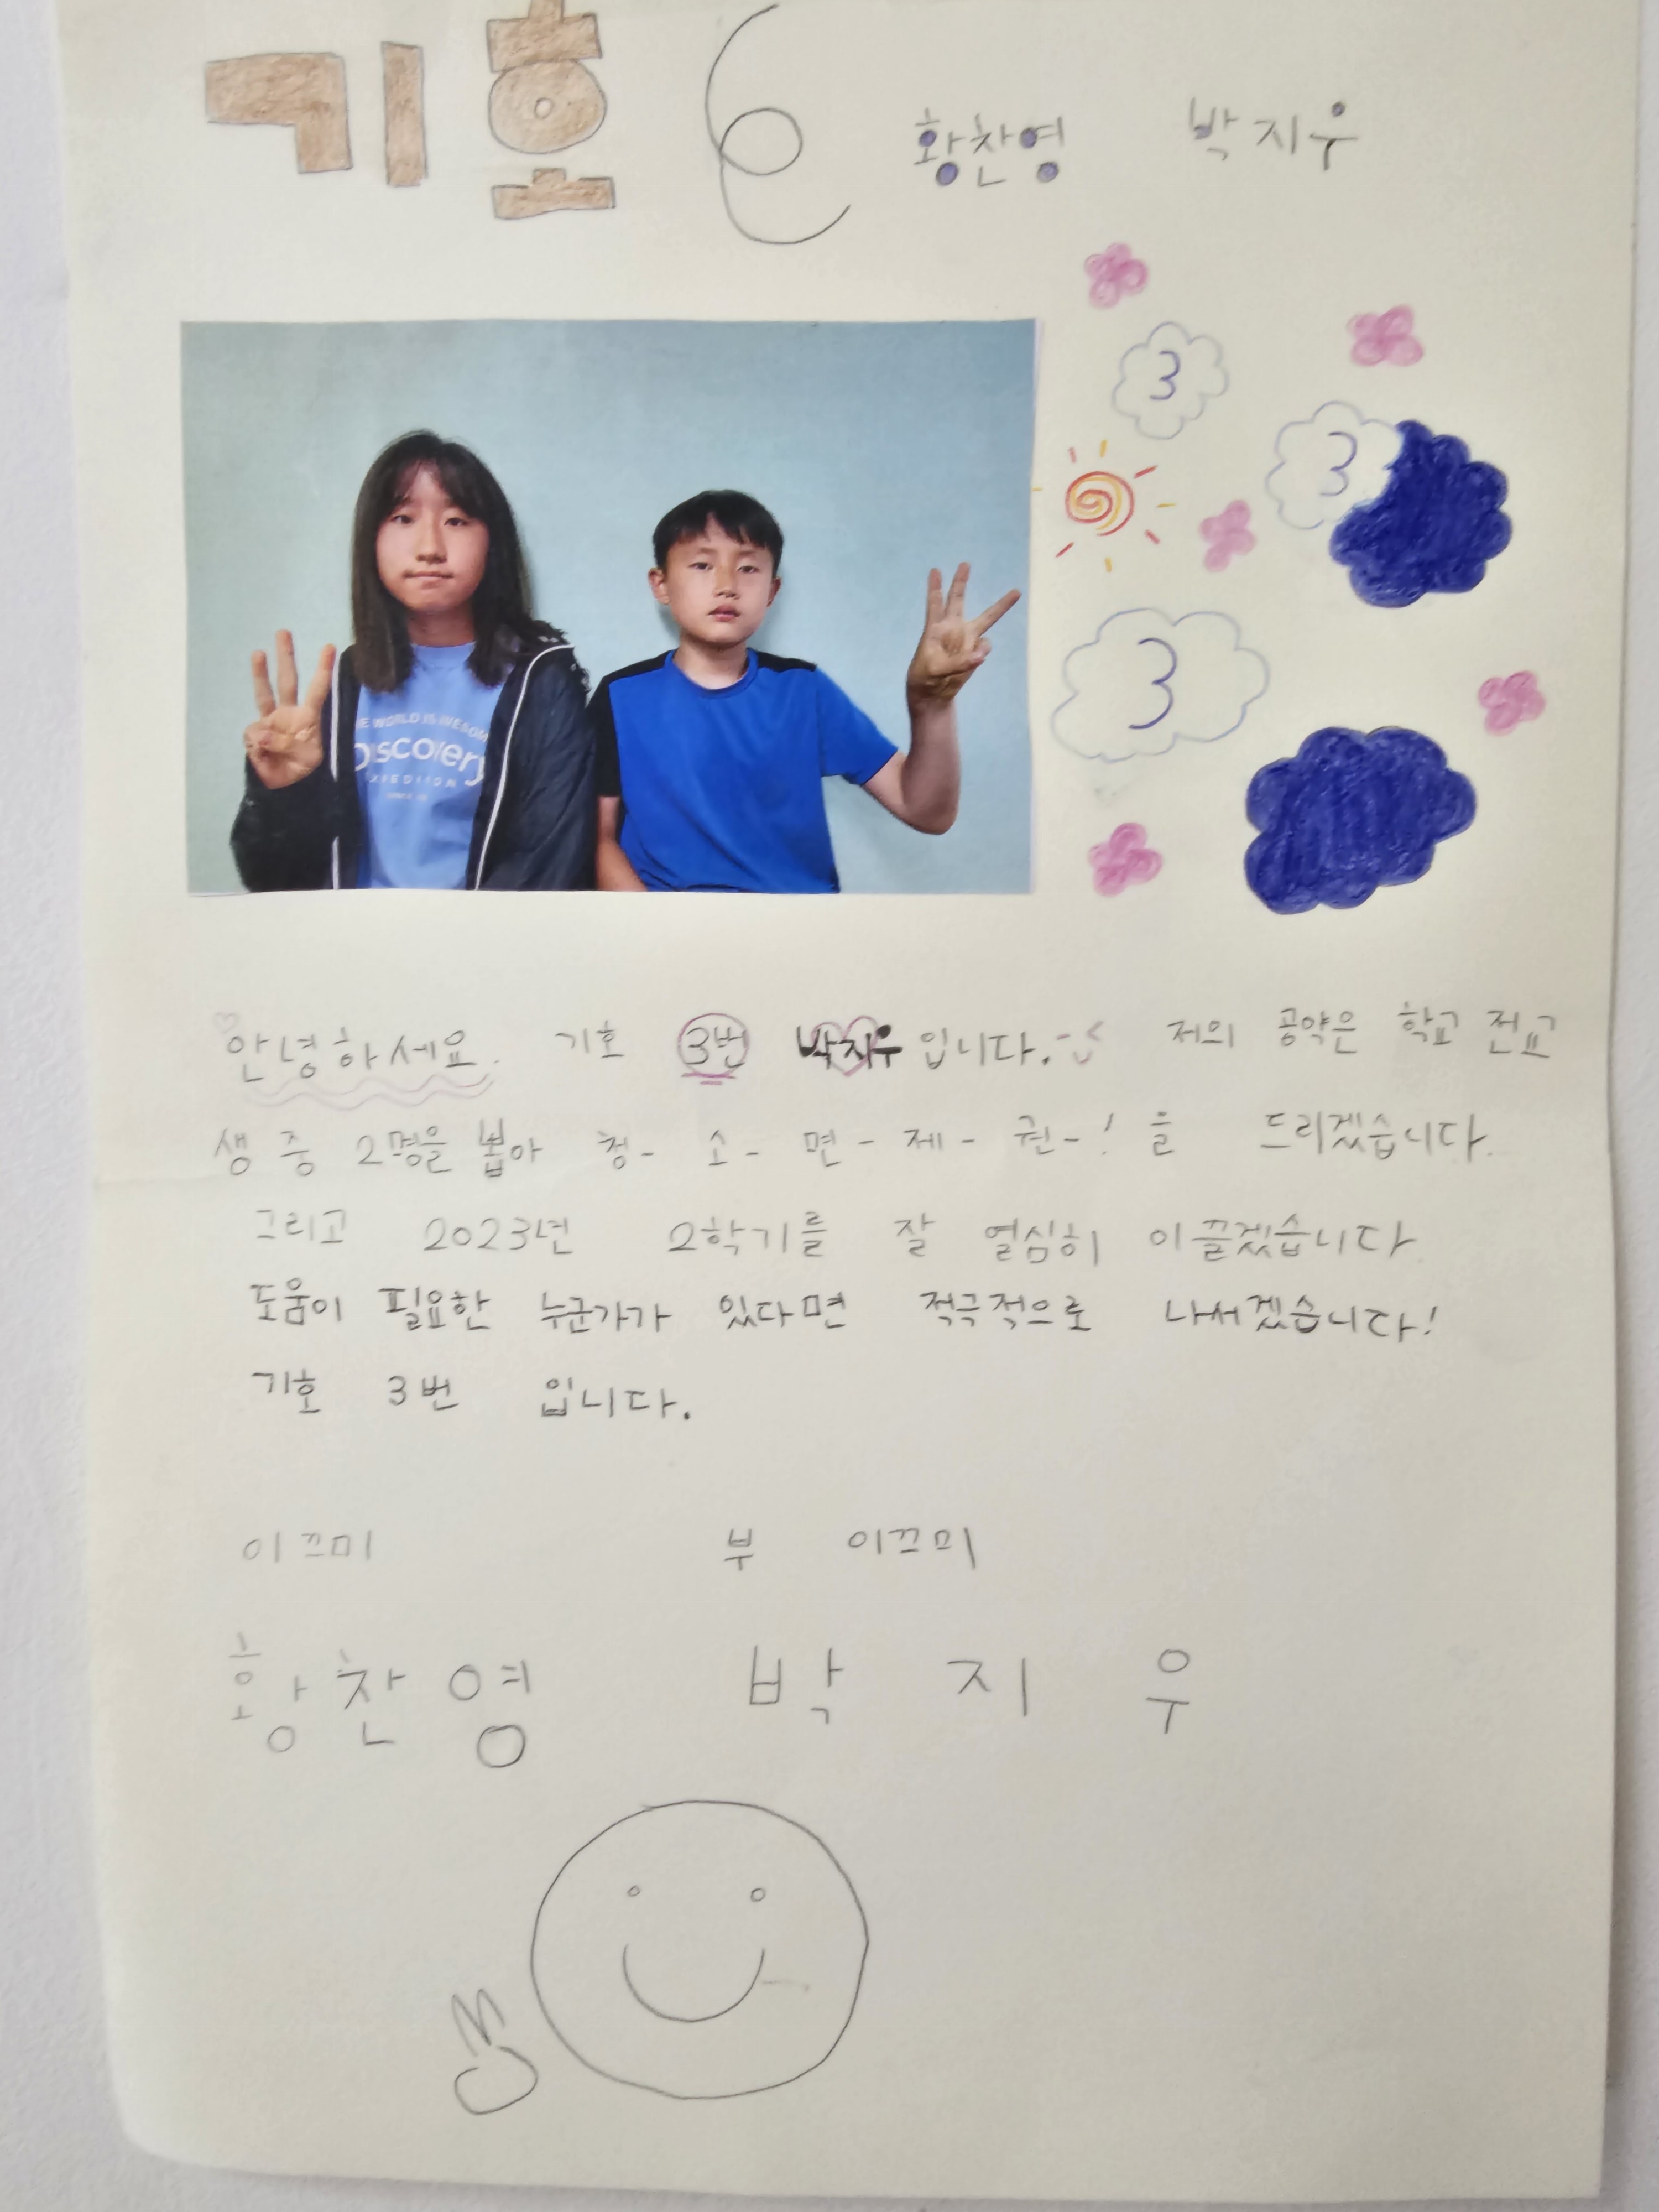 기호 황찬영 박지우
3
3
3
THE WORLD IS AWESOME
Discovery
EXPEDITION
안녕하세요. 기호 3번 박지우입니다. 저의 공약은 학교 전교
생 중 2명을 뽑아 청- 소- 면- 제- 권-! 을 드리겠습니다.
그리고 2023년 2학기를 잘 열심히 이끌겠습니다
도움이 필요한 누군가가 있다면 적극적으로 나서겠습니다!
기호 3번 입니다.
이끄미 부 이끄미
황찬영 박 지 우